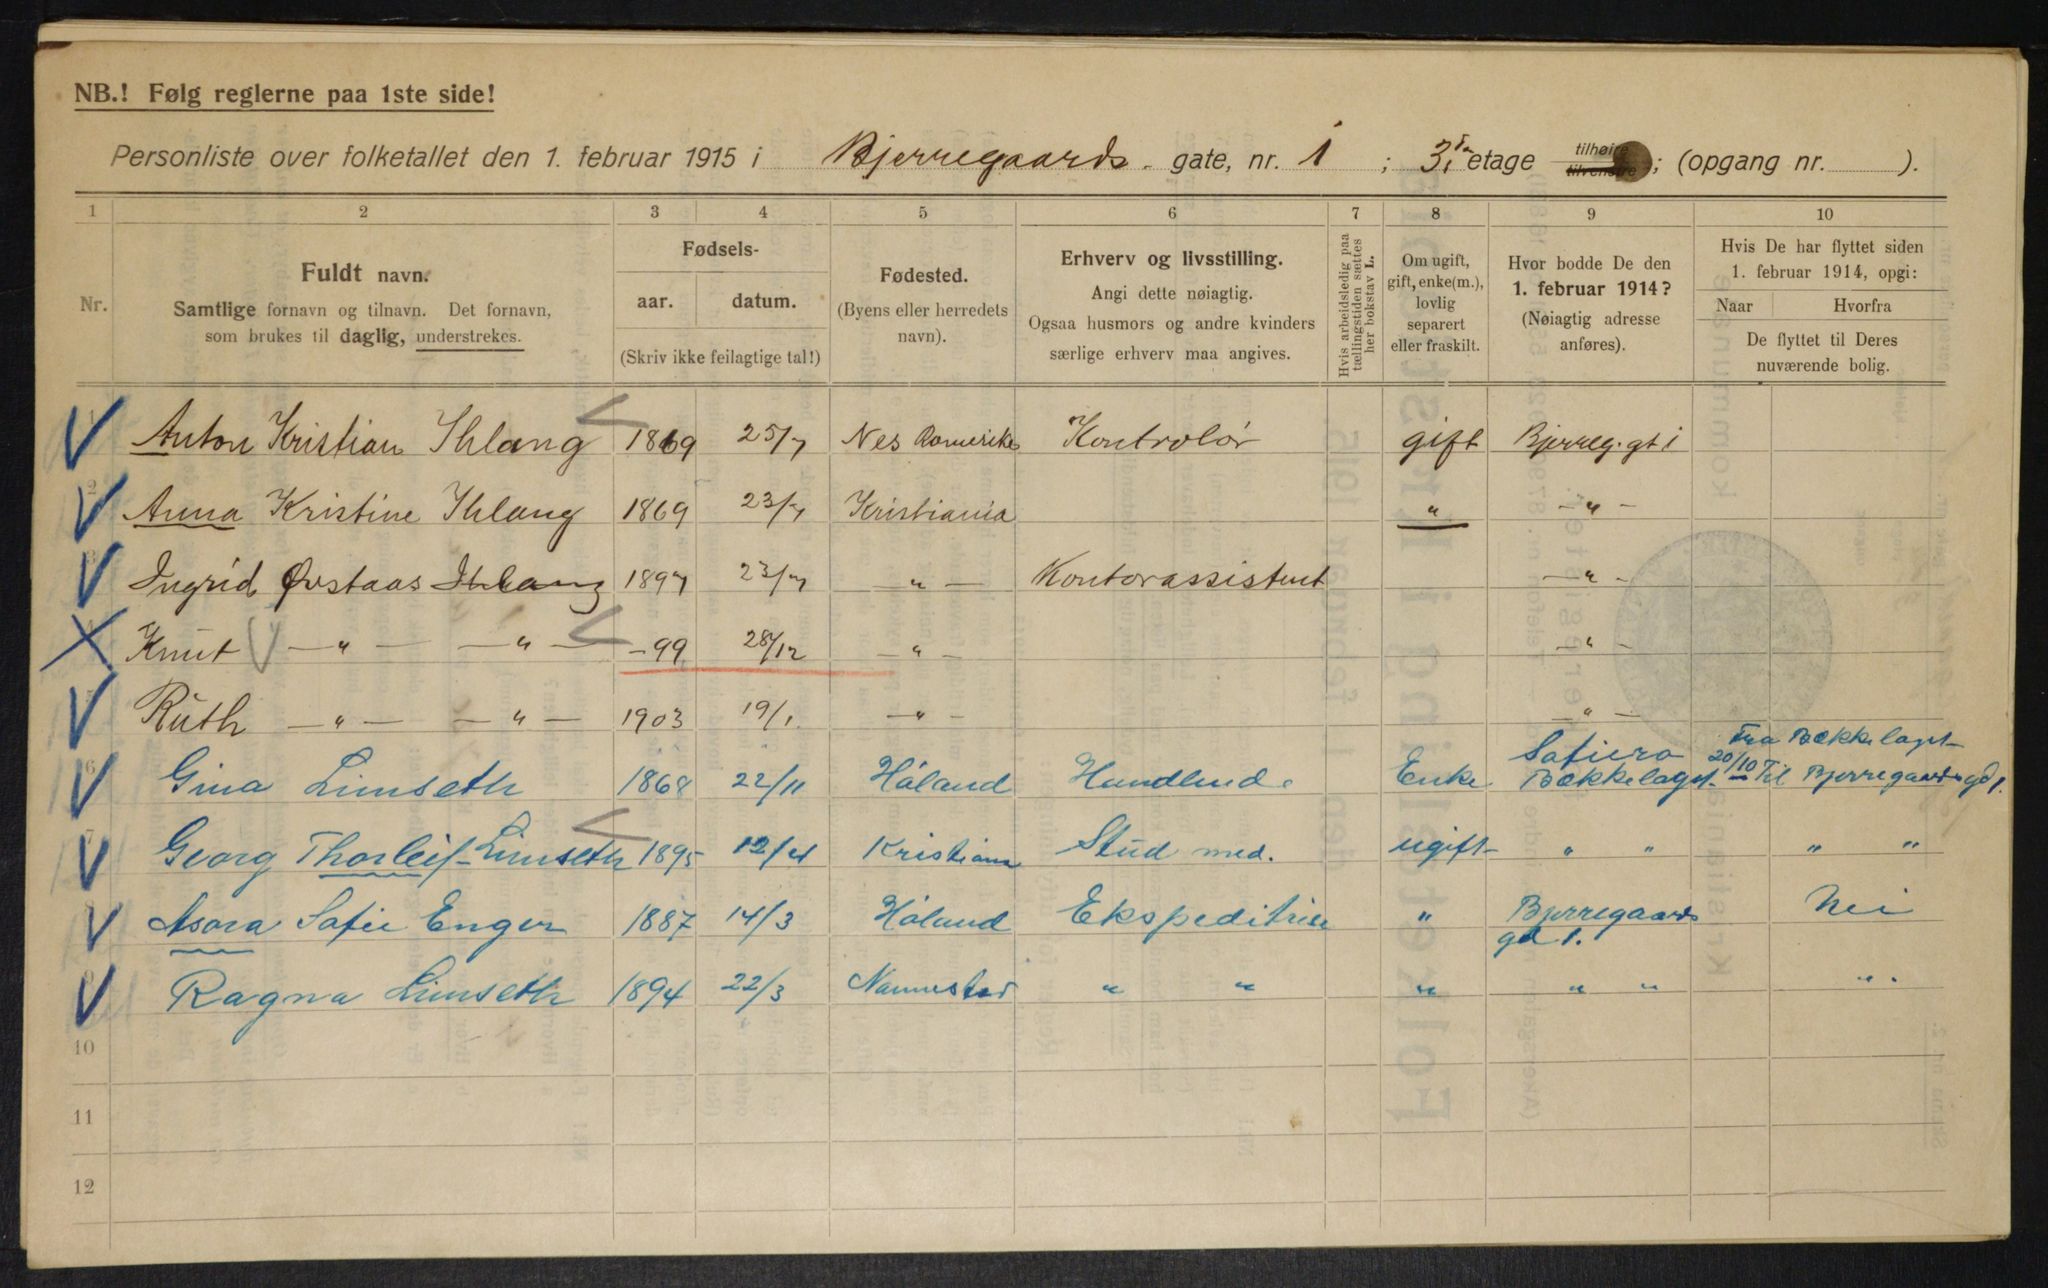 NB.! Følg reglerne paa 1ste side!
Personliste over folketallet den 1. februar 1915 i Bjerregaards gate, nr. 1 ; 3. etage tilhøire tilvenstre ; (opgang nr. ).
1 2 3 4 5 6 7 8 9 10
Nr.
Fuldt navn.
Samtlige fornavn og tilnavn. Det fornavn,
som brukes til daglig, understrekes.
Fødsels-
aar. datum.
(Skriv ikke feilagtige tal!)
Fødested.
(Byens eller herredets
navn).
Erhverv og livsstilling.
Angi dette nøiagtig.
Ogsaa husmors og andre kvinders
særlige erhverv maa angives.
Hvis arbeidsledig paa
tællingstiden sættes
her bokstav L.
Om ugift,
gift, enke(m.),
lovlig
separert
eller fraskilt.
Hvor bodde De den
1. februar 1914?
(Nøiagtig adresse
anføres).
Hvis De har flyttet siden
1. februar 1914, opgi:
Naar Hvorfra
De flyttet til Deres
nuværende bolig.
1 Anton Kristian Ihlang 1869 25/7 Nes Romerike Kontrolör gift Bjerreg. gt 1
2 Anna Kristine Ihlang 1869 23/7 Kristiania " — " —
3 Ingrid Øvstaas Ihlang 1897 23/7 — " — Kontorassistent — " —
4 Knut — " — — " — -99 28/12 — " — — " —
5 Ruth — " — — " — 1903 19/1 — " — — " —
Fra Bækkelaget
6 Gina Limseth 1868 22/11 Höland Handlende Enke Sofiero Bækkelaget 20/10 Til Bjerregaards gd 1.
7 Georg Thorleif Limseth 1895 12/4 Kristiania Stud med. ugift " " " "
8 Asora Sofie Enger 1887 14/3 Höland Ekspeditrise " Bjerregaards gd 1. Nei
9 Ragna Limseth 1894 22/3 Nannestad " " " " " "
10
11
12